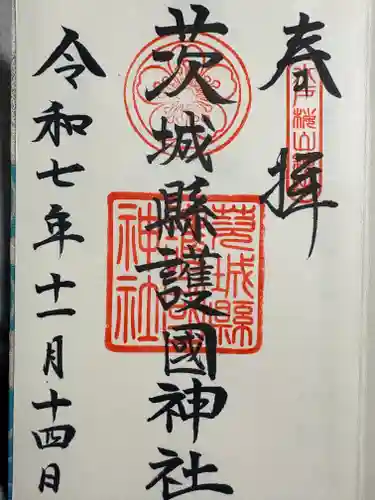 奉拝
茨城縣護國神社
令和七年十一月十四日
茨城縣護國神社